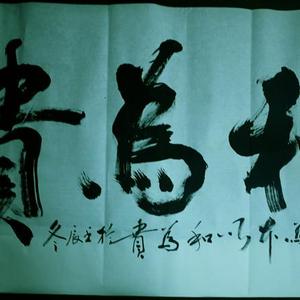 和為貴
為本以和為貴於壬辰冬